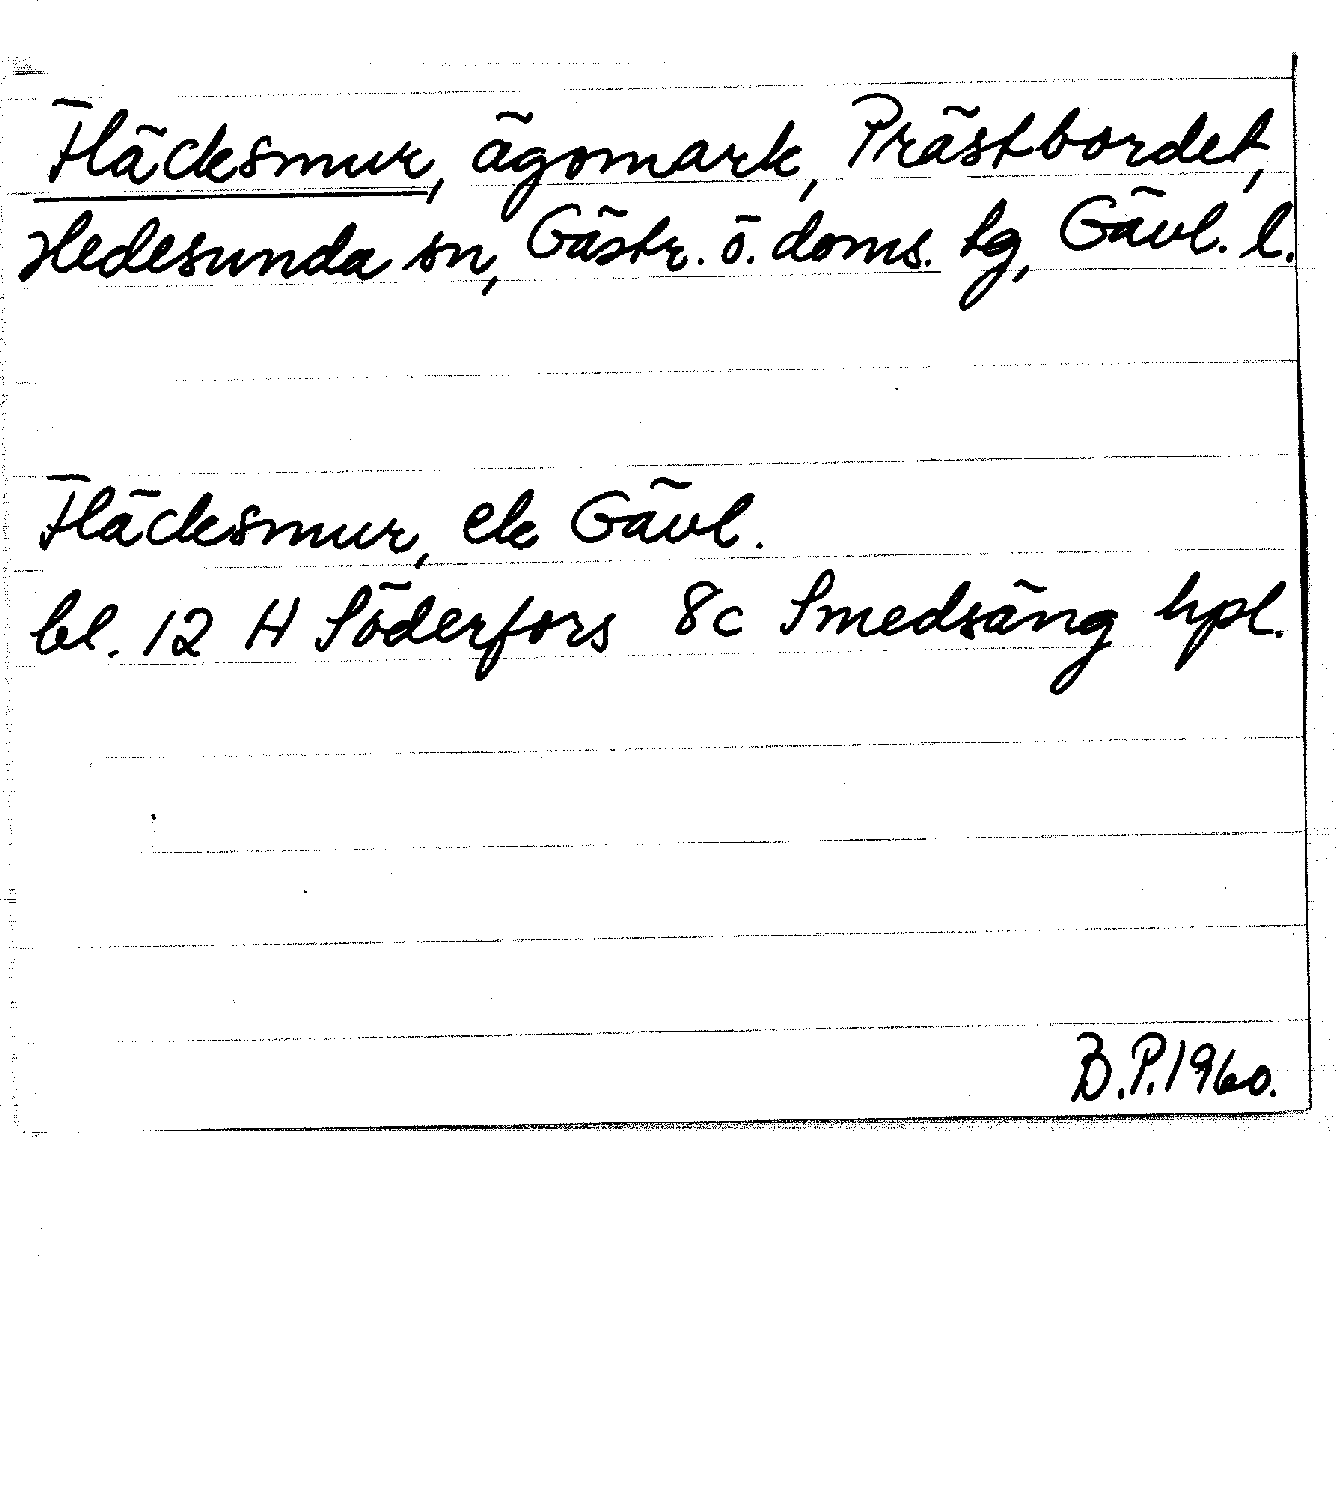 Fläcksmur, ägomark, Prästbordet,
Hedesunda sn, Gästr. ö. doms. tg, Gävl. l.
Fläcksmur, ek Gävl.
bl. 12 H Söderfors 8c Smedsäng hpl.
B.P. 1960.